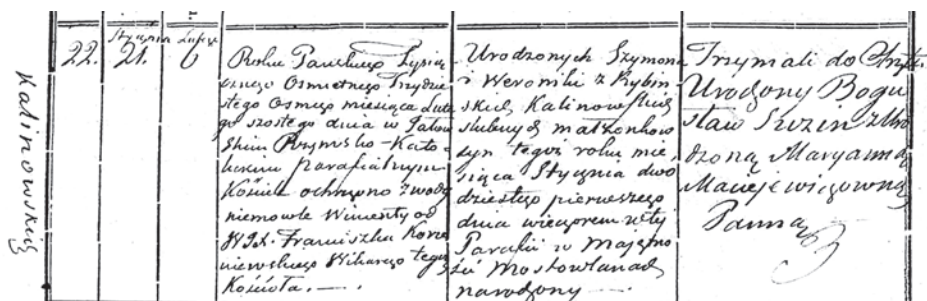 Kalinowskich
22.
Stycznia
21.
Lutego
6
Roku Pańskiego Tysią
cznego Osmsetnego Trzydzie
stego Osmego miesiąca Lute
go szostego dnia w
skim Rzymsko-Kato-
lickim Parafialnym
Kościele ochrzczono z wody
niemowle Wincenty od
W J X. Franciszka Korze
niewskiego Wikarego tegoż
Kościoła. —
Urodzonych Szymona
i Weroniki z Rybiń
skich Kalinowskich
slubnych małżonkow
syn tegoż roku mie
siąca Stycznia dwo
dziestego pierwszego
dnia wieczorem w tej
Parafii w Majętno
ści Mostowlanach
narodzony —
Trzymali do Chrztu
Urodzony Bogu
sław z Uro
dzoną Maryanną
Maciejewiczowną
Panną